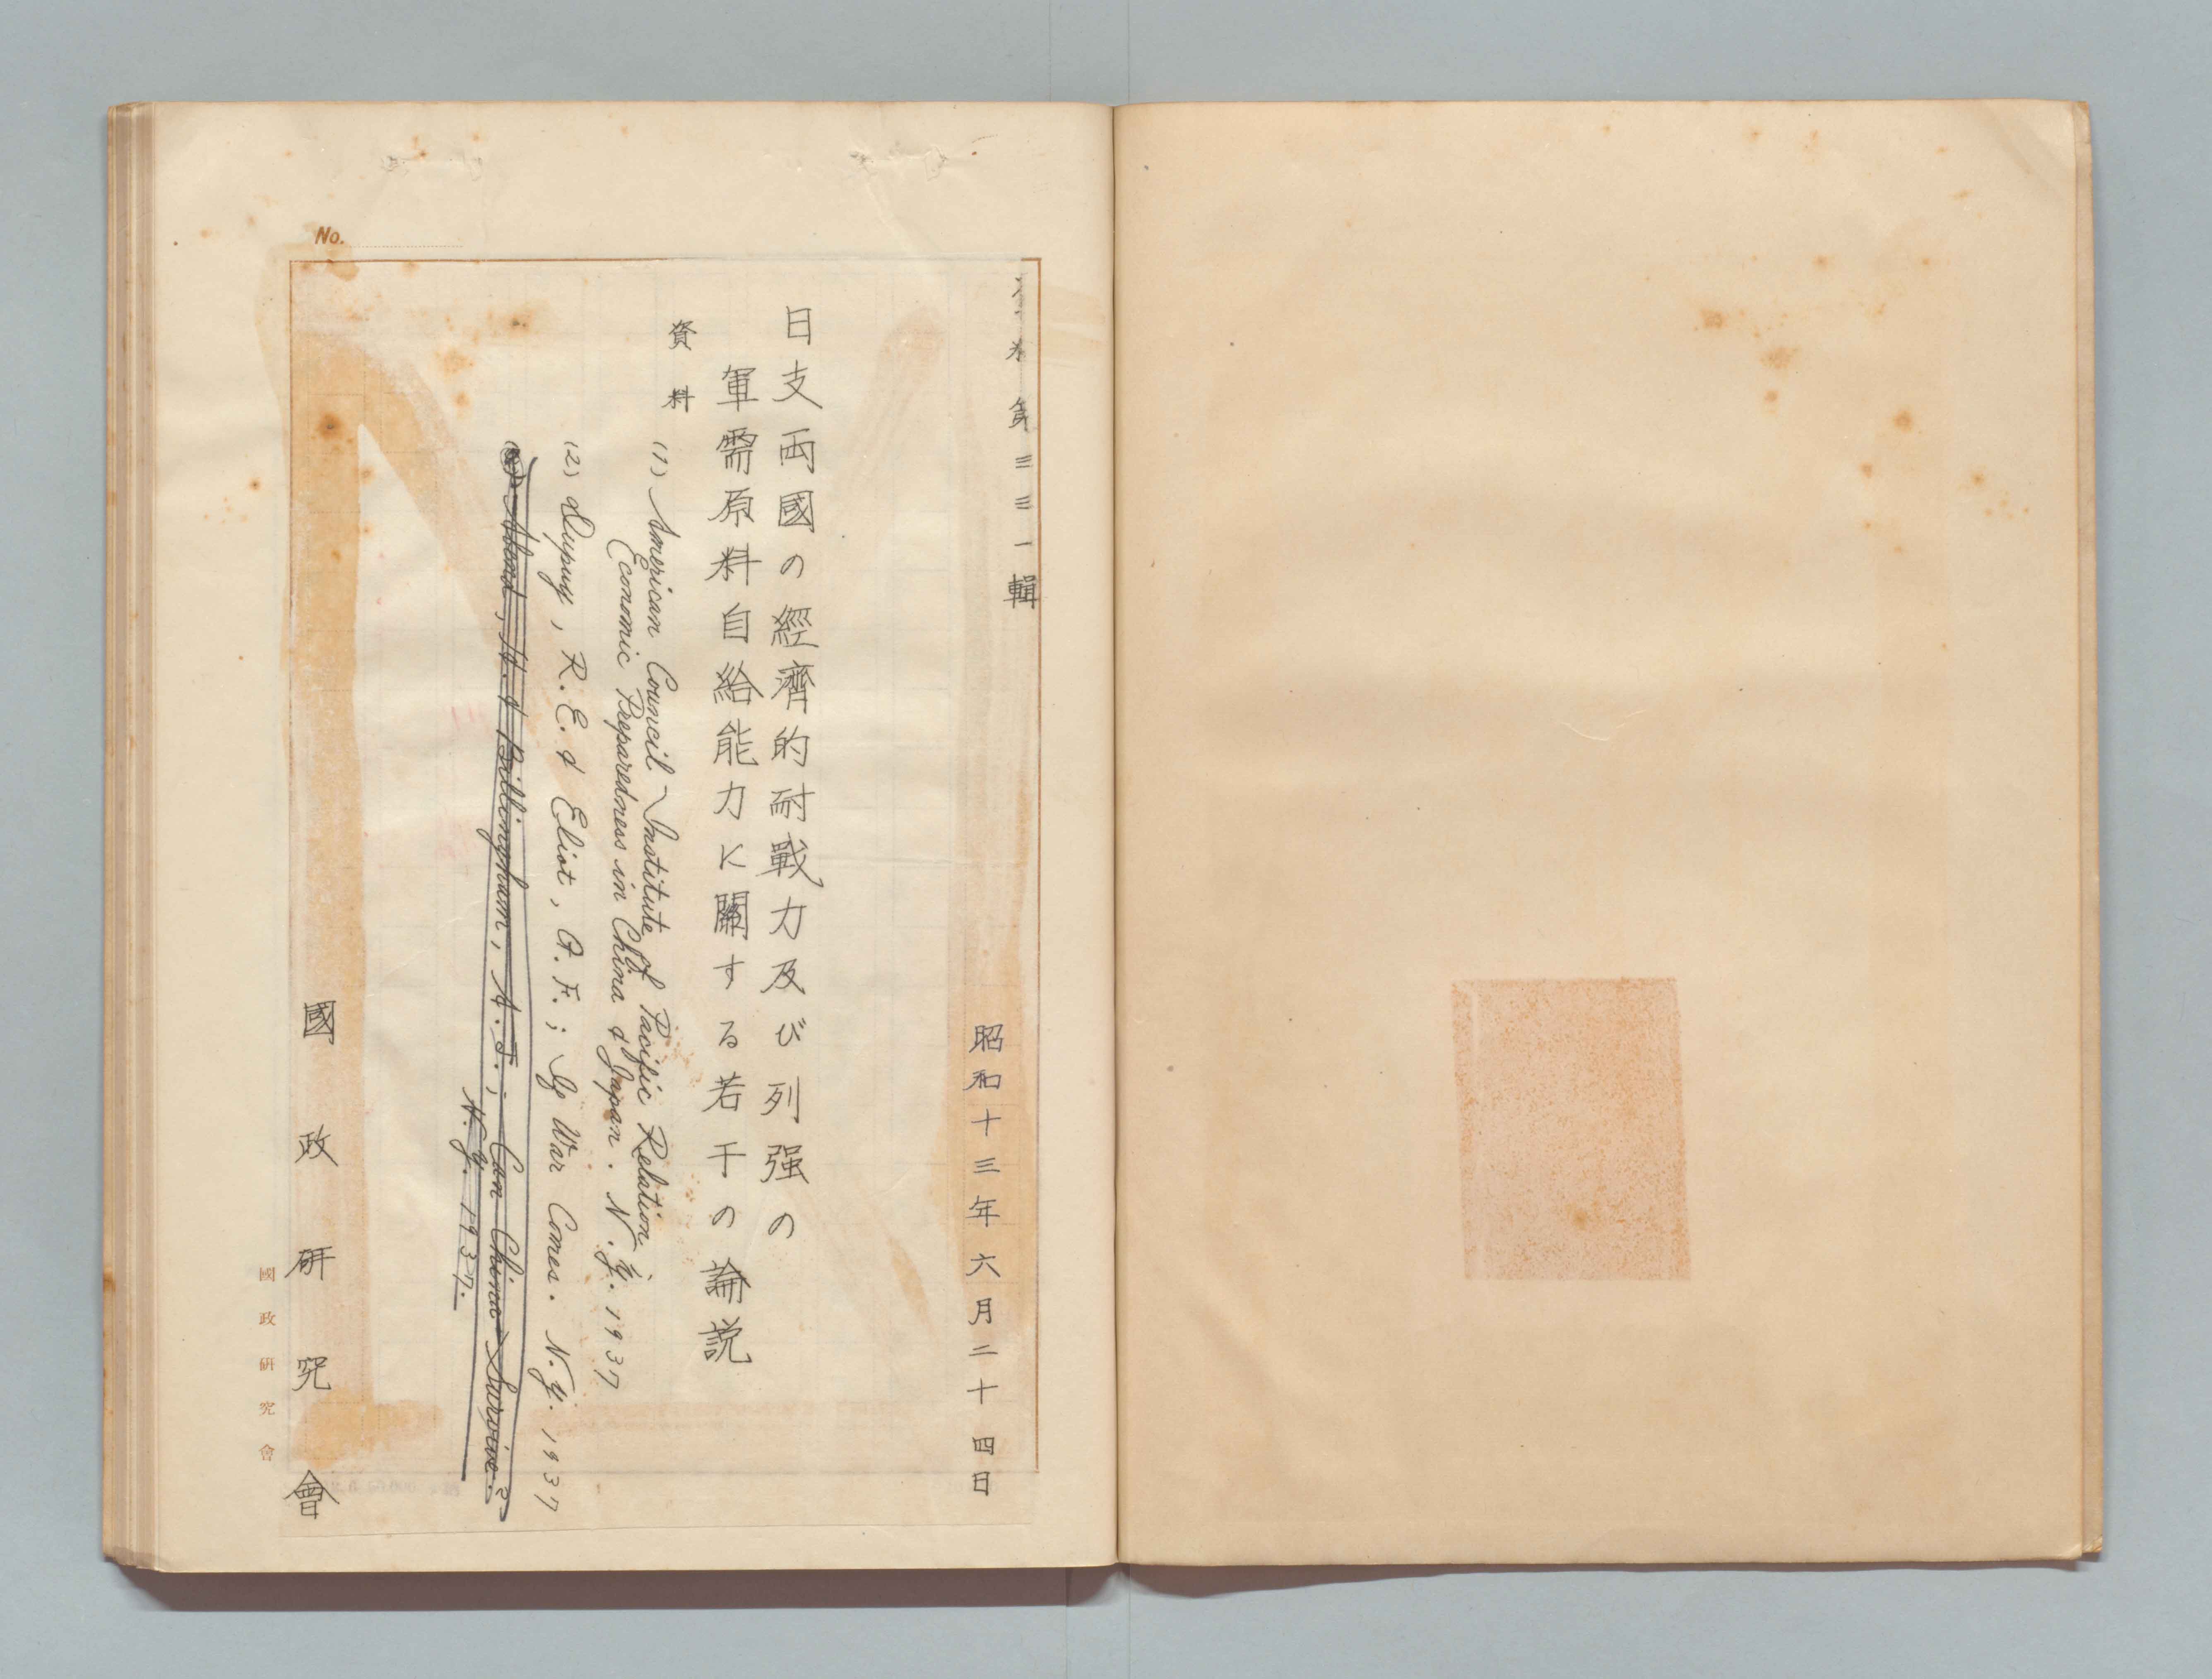 No.
第三三一輯
昭和十三年六月二十四日
日支両國の經濟的耐戰力及び列强の
軍需原料自給能力に關する若干の論説
資料
(1) American Council Institute of Pacific Relation
Economic Preparedness in China & Japan. N.Y. 1937
(2) Dupuy, R.E. & Eliot, G.F.; If War Comes. N.Y. 1937
Abend, H. & Billingham, A.J.; Can China Survive?
N.Y. 1937.
國政研究會
國政研究會